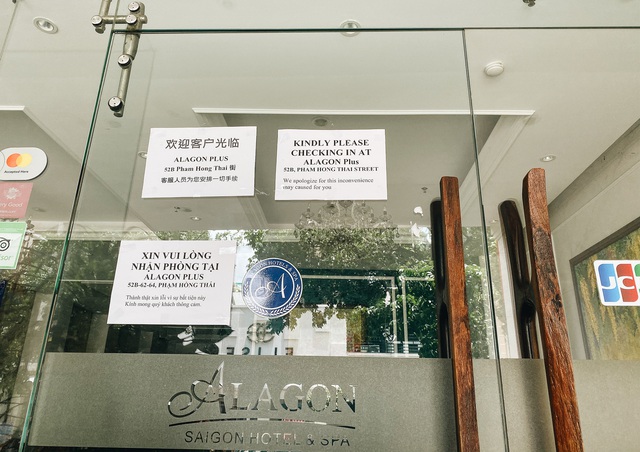 欢迎客户光临
ALAGON PLUS
52B Pham Hong Thai 街
客服人员为您安排一切手续
KINDLY PLEASE
CHECKING IN AT
ALAGON Plus
52B, PHAM HONG THAI STREET
We apologize for this inconvenience
may caused for you
XIN VUI LÒNG
NHẬN PHÒNG TẠI
ALAGON PLUS
52B-62-64, PHẠM HỒNG THÁI
Thành thật xin lỗi vì sự bất tiện này
Kính mong quý khách thông cảm.
HOTEL & SPA
A
ALAGON
SAIGON HOTEL & SPA
JCB